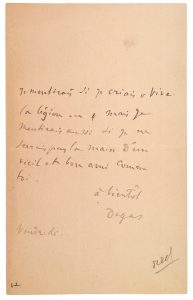 je mentirais si je criais « Vive
la légion ... » mais je
mentirais aussi si je ne
serrais pas la main d'un
vieil et bon ami comme
toi.
à bientôt
Degas
Vendredi.